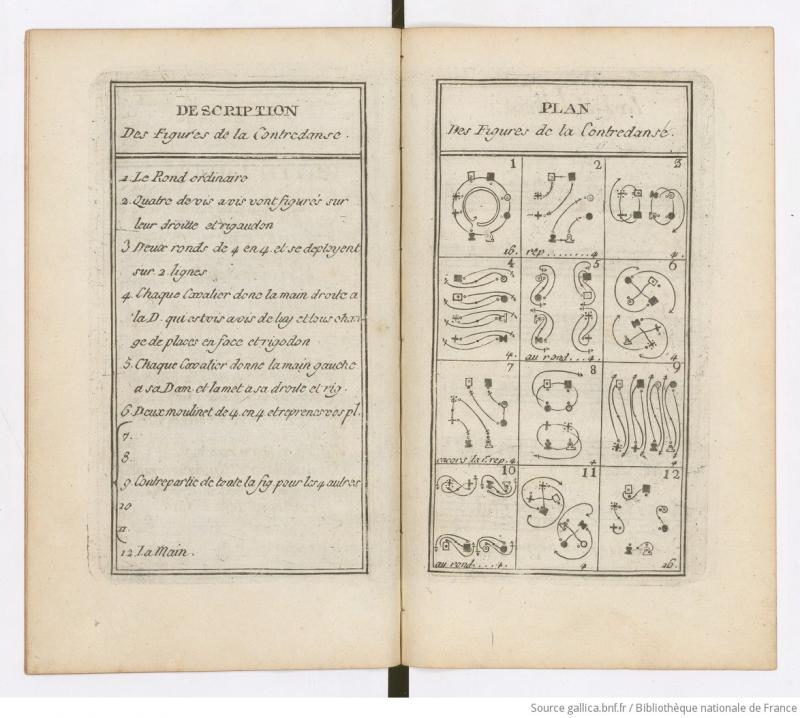 DESCRIPTION
Des Figures de la Contredanse.
1. Le Rond ordinaire
2. Quatre de vis a vis vont figurés sur
leur droitte et rigaudon
3 Deux ronds de 4 en 4. et se deployent
sur 2 lignes
4. Chaque Cavalier done la main droite a
la D. qui est vis avis de luy et tous chan
ge de places en face et rigodon
5. Chaque Cavalier donne la main gauche
a sa Dam. et la met a sa droite et rig.
6. Deux moulinet de 4. en 4 et reprenes vos pl.
7.
8
9 Contrepartie de toute la fig. pour les 4 autres
10
11.
12. La Main.
PLAN
Des Figures de la Contredanse.
1
16.
2
rep........4
3
4.
4
4.
5
au rond....4.
6
4
7
la 1re rep. 4.
8
4
9
4
10
au rond....4.
11
4
12
16.
Source gallica.bnf.fr / Bibliothèque nationale de France